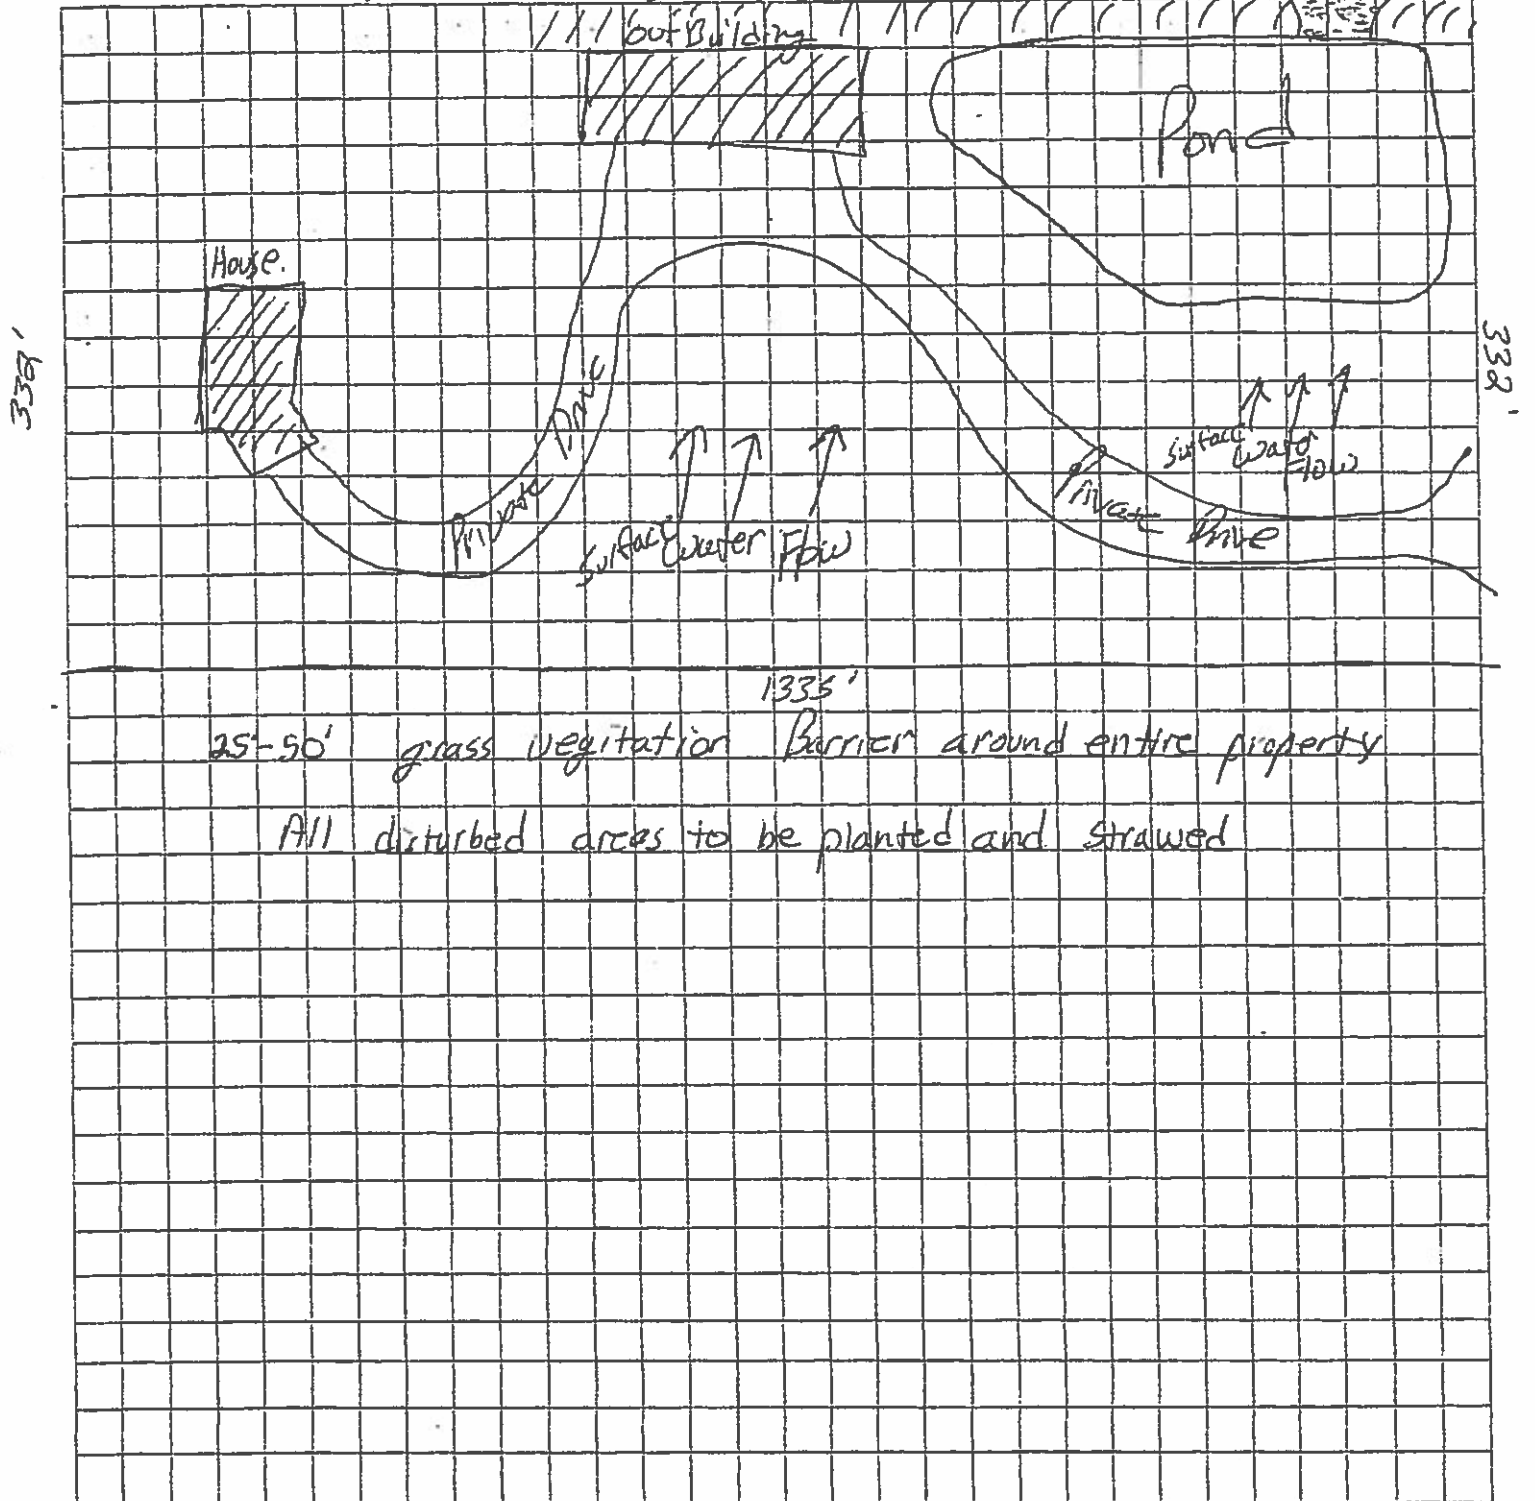 outBuilding
Pond
House.
332'
332'
Private Drive
Surface Water Flow
Surface
Water
Flow
Private Drive
1335'
25'-50' grass vegitation Barrier around entire property
All disturbed areas to be planted and strawed